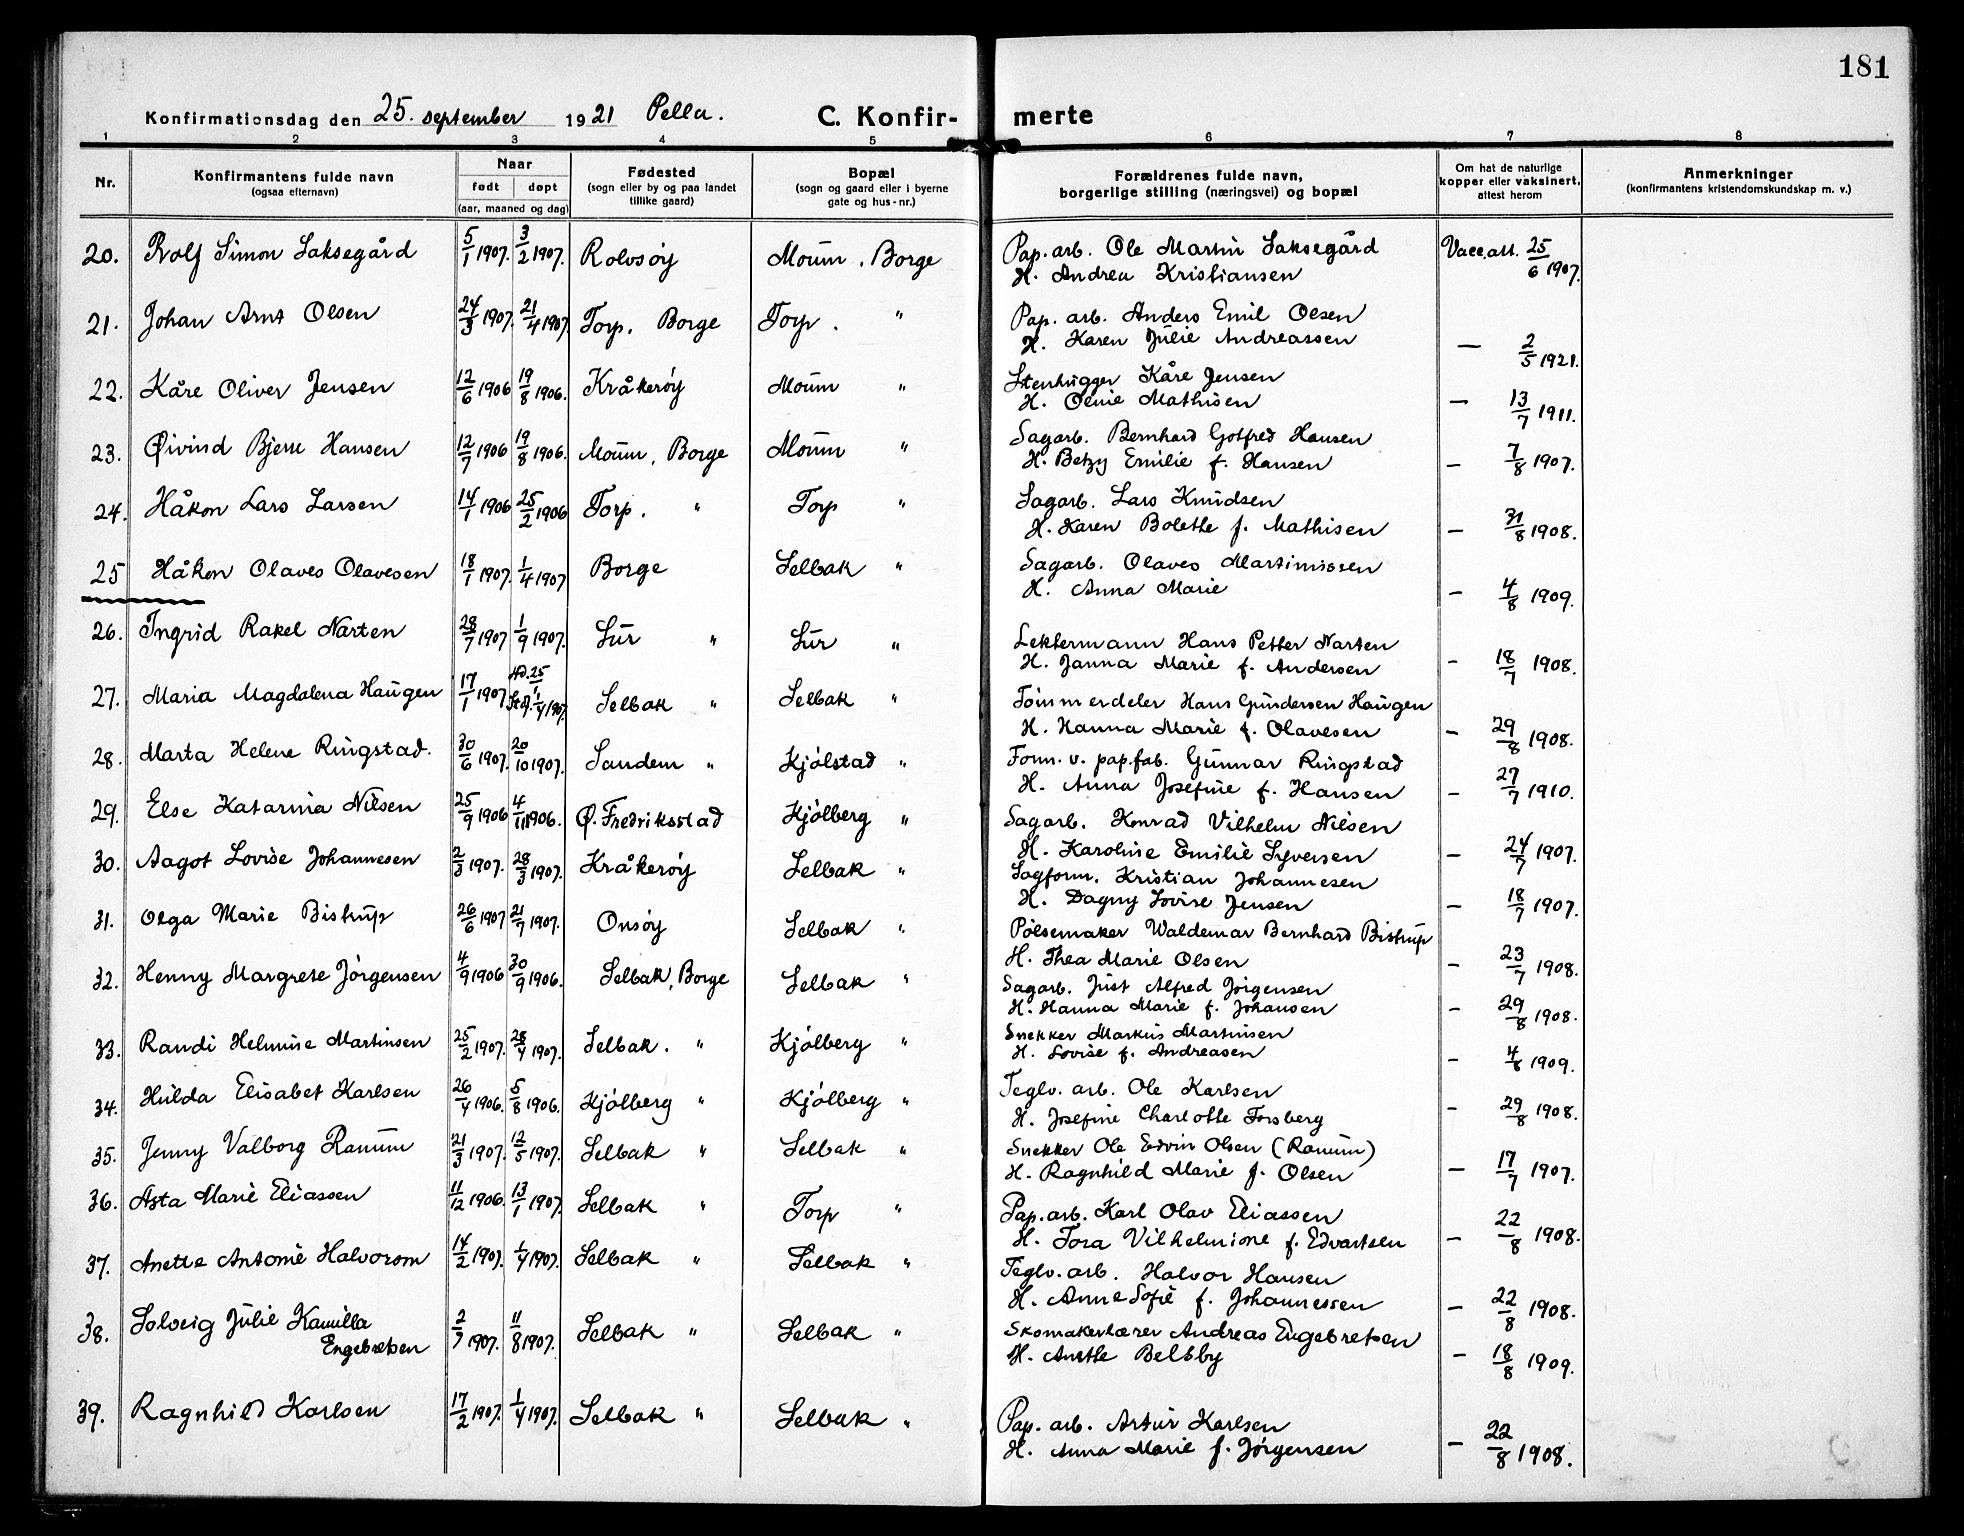 181
Konfirmationsdag den 25. september 1921 Pella. C. Konfir- merte
1 2 3 4 5 6 7 8
Nr. Konfirmantens fulde navn (ogsaa efternavn) Naar født døpt (aar, maaned og dag) Fødested (sogn eller by og paa landet tillike gaard) Bopæl (sogn og gaard eller i byerne gate og hus-nr.) Forældrenes fulde navn, borgerlige stilling (næringsvei) og bopæl Om hat de naturlige kopper eller vaksinert, attest herom Anmerkninger (konfirmantens kristendomskundskap m. v.)
20. Rolf Simon Laksegård 5/1 1907. 3/2 1907. Rolvsøy Moum. Borge Pap. arb. Ole Martin Laksegård Vacc. att. 25/6 1907.
H. Andrea Kristiansen
21. Johan Arnt Olsen 24/3 1907. 21/4 1907. Torp. Borge Torp. " Pap. arb. Anders Emil Olsen
H. Karen Julie Andreassen — 2/5 1921.
22. Kåre Oliver Jensen 12/6 1906 19/8 1906. Kråkerøy Moum " Stenhugger Kåre Jensen
H. Olnie Mathisen — 13/7 1911.
23. Øivind Bjerre Hansen 12/7 1906 19/8 1906. Moum, Borge Moum " Sagarb. Bernhard Gotfred Hansen
H. Betzy Emilie f. Hansen — 7/8 1907.
24. Håkon Lars Larsen 14/1 1906 25/2 1906 Torp. " Torp " Sagarb. Lars Knudsen
H. Karen Bolethe f. Mathisen — 31/8 1908.
25 Håkon Olaves Olavesen 18/1 1907. 1/4 1907 Borge Selbak " Sagarb. Olaves Martinissen
H. Anna Marie — 4/8 1909.
26. Ingrid Rakel Narten 28/7 1907 1/9 1907. Lur " Lur " Lektermann Hans Petter Narten
H. Janna Marie f. Andersen — 18/7 1908.
27. Maria Magdalena Haugen 17/1 1907. 1/4 1907. Selbak " Selbak " Tømmerdeler Hans Gundersen Haugen
H. Hanna Marie f. Olavesen — 29/8 1908.
28. Marta Helene Ringstad. 30/6 1907. 20/10 1907. Sandem " Kjølstad " Form. v. pap.fab. Gunnar Ringstad
H. Anna Josefine f. Hansen — 27/7 1910.
29. Else Katarina Nilsen 25/9 1906 4/11 1906. Ø. Fredriksstad Kjølberg " Sagarb. Konrad Vilhelm Nilsen
H. Karoline Emilie Syversen — 24/7 1907.
30. Aagot Lovise Johannesen 2/3 1907. 28/3 1907. Kråkerøy Selbak " Sagform. Kristian Johannesen
H. Dagny Lovise Jensen — 18/7 1907.
31. Olga Marie Bistrup 26/6 1907 21/7 1907. Onsøy Selbak " Pølsemaker Waldemar Bernhard Bistrup
H. Thea Marie Olsen — 23/7 1908.
32. Henny Margrete Jørgensen 4/9 1906 30/9 1906. Selbak, Borge Selbak " Sagarb. Just Alfred Jørgensen
H. Hanna Marie f. Johansen — 29/8 1908.
33. Randi Helmine Martinsen 25/2 1907. 28/4 1907. Selbak. " Kjølberg " Snekker Markus Martinsen
H. Lovise f. Andreasen — 4/8 1909.
34. Hilda Elisabet Karlsen 26/4 1906. 5/8 1906. Kjølberg " Kjølberg " Teglv. arb. Ole Karlsen
H. Josefine Charlotte Forsberg — 29/8 1908.
35. Jenny Valborg Ranum 21/3 1907. 12/5 1907. Selbak " Selbak " Snekker Ole Edvin Olsen (Ranum)
H. Ragnhild Marie f. Olsen — 17/7 1907.
36. Asta Marie Eliassen 11/12 1906. 13/1 1907. Selbak " Torp " Pap. arb. Karl Olav Eliassen
H. Tora Vilhelmine f. Edvartsen — 22/8 1908.
37. Anette Antonie Halvorsen 14/2 1907. 1/4 1907. Selbak " Selbak " Teglv. arb. Halvor Hansen
H. Anne Sofie f. Johannessen — 22/8 1908.
38. Solveig Julie Kamilla Engebretsen 2/7 1907. 11/8 1907. Selbak " Selbak " Skomakerlærer Andreas Engebretsen
H. Anethe Belsby — 18/8 1909.
39. Ragnhild Karlsen 17/2 1907. 1/4 1907. Selbak " Selbak " Pap. arb. Artur Karlsen
H. Anna Marie f. Jørgensen — 22/8 1908.